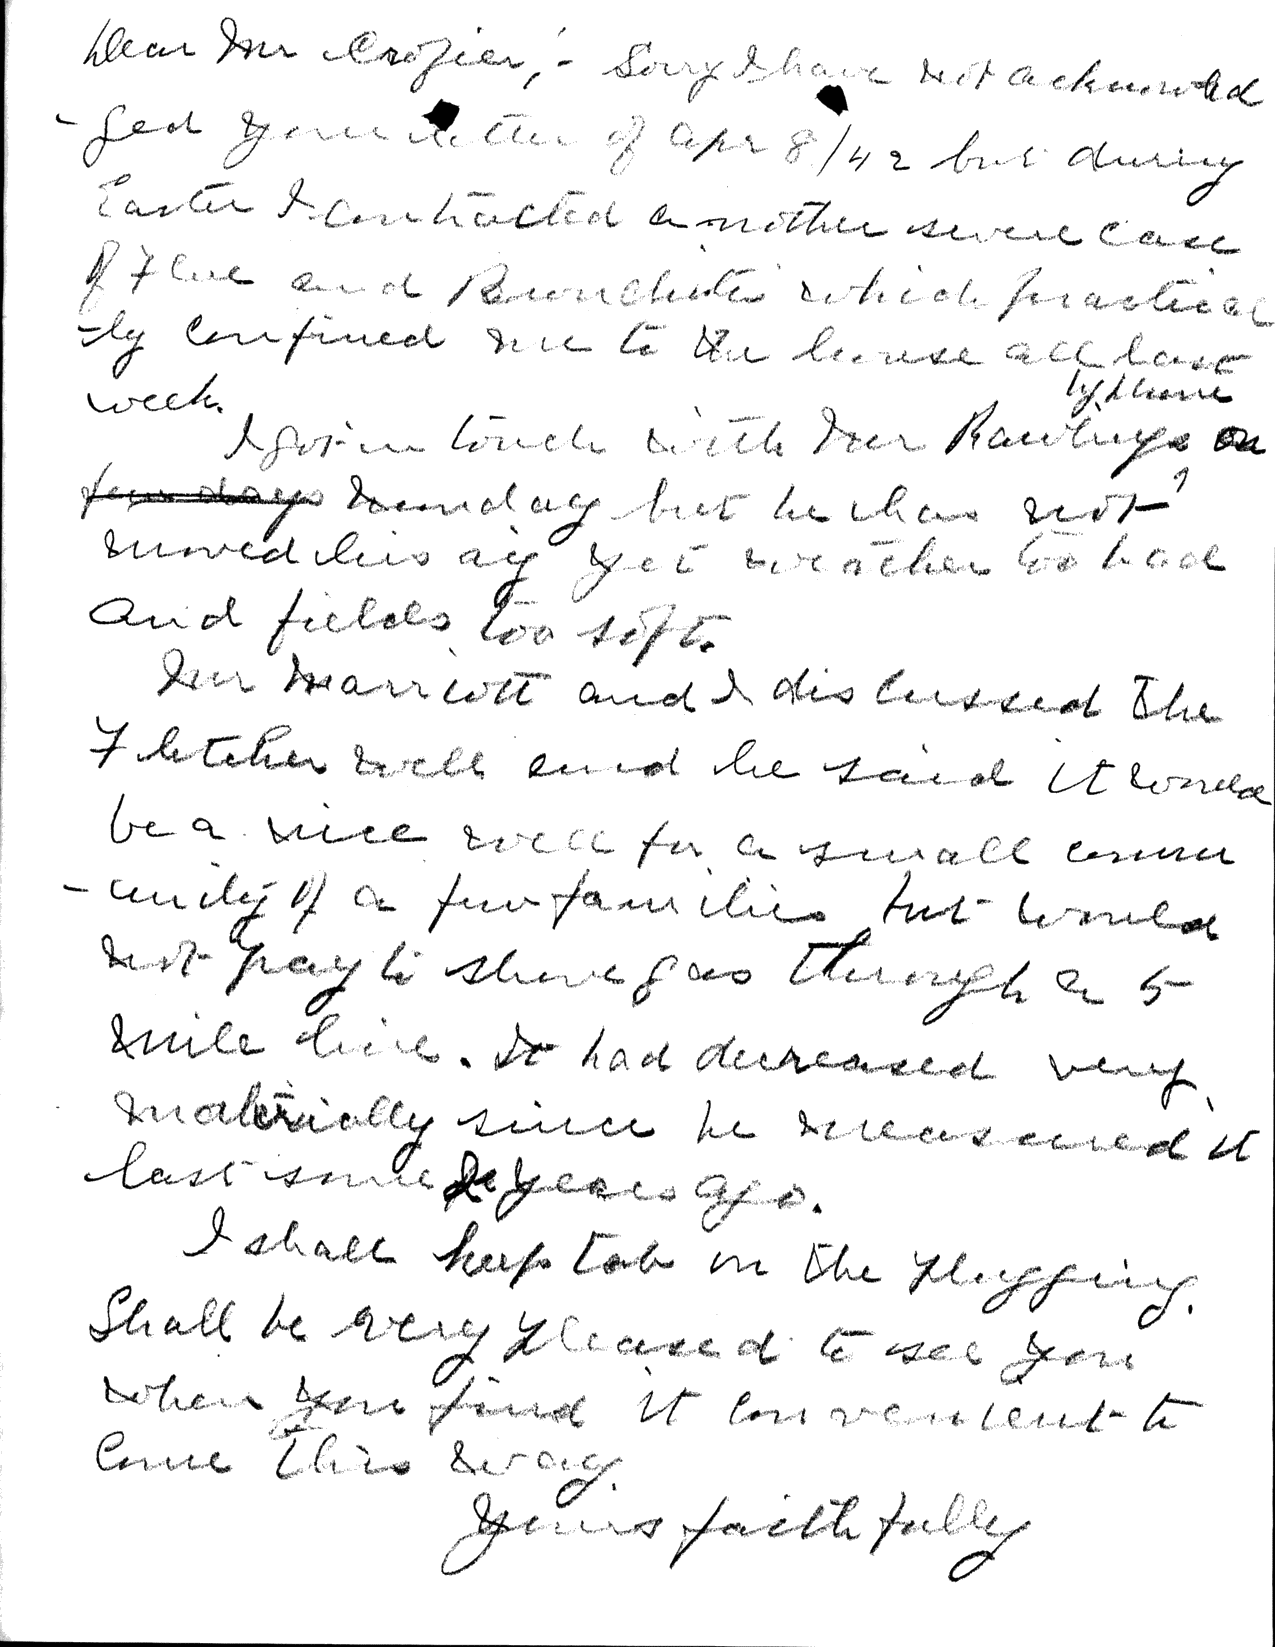 Dear Mr Crozier,- Sorry I have not acknowled
-ged your letter of Apr 8/42 but during
Easter I contracted another severe case
of Flue and Bronchitis which practical
-ly confined me to the house all last
week.
by phone
I got in touch with Mr Rawlings on
few days Monday but he has not
moved his rig yet weather too bad
and fields too soft.
Mr Marriott and I discussed the
Fletcher well and he said it would
be a nice well for a small comm
-unity of a few families but would
not pay to shove gas through a 5
mile line. It had decreased very
materially since he measured it
last some years ago.
I shall keep tab on the plugging.
Shall be very pleased to see you
when you find it convenient to
come this way.
Yours faithfully